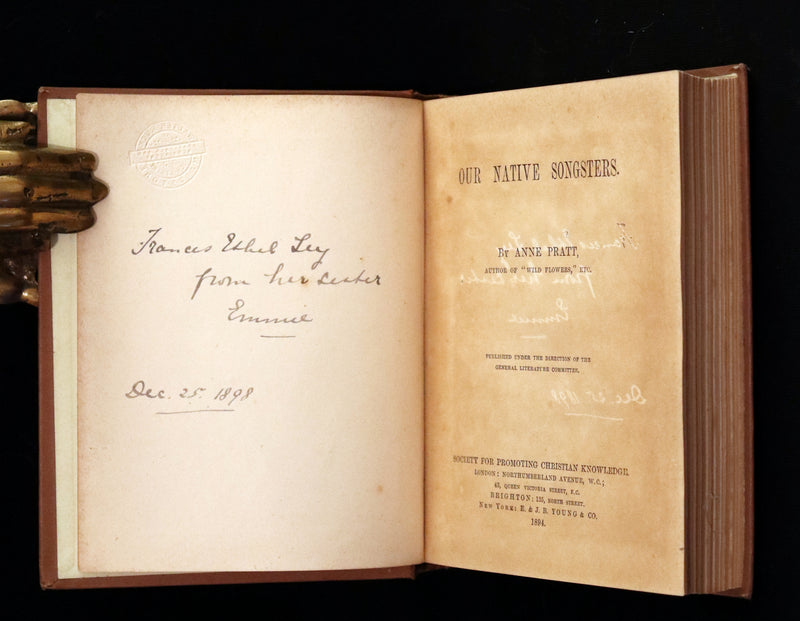 Frances Ethel Ley
from her sister
Emmie
Dec. 25. 1898
OUR NATIVE SONGSTERS.
BY ANNE PRATT,
AUTHOR OF "WILD FLOWERS," ETC.
PUBLISHED UNDER THE DIRECTION OF THE
GENERAL LITERATURE COMMITTEE.
SOCIETY FOR PROMOTING CHRISTIAN KNOWLEDGE.
LONDON: NORTHUMBERLAND AVENUE, W.C.;
43, QUEEN VICTORIA STREET, E.C.
BRIGHTON: 135, NORTH STREET.
NEW YORK: E. & J. B. YOUNG & CO.
1894.